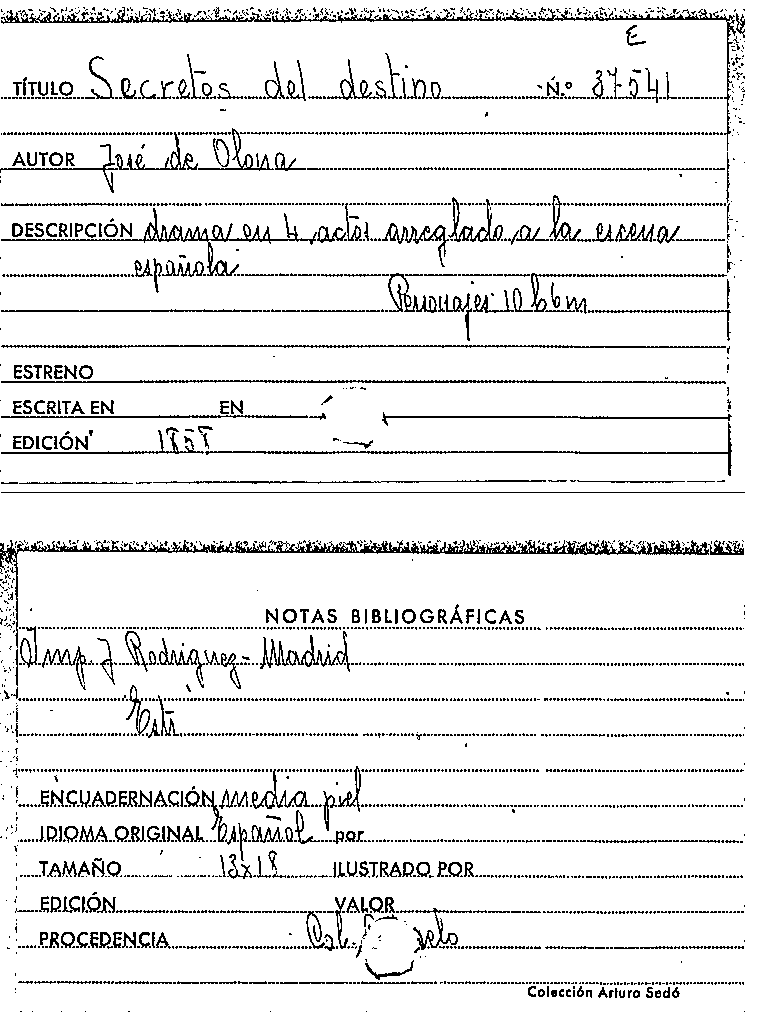 E
TÍTULO Secretos del destino N.º 37541
AUTOR José de Olona
DESCRIPCIÓN drama en 4 actos arreglado a la escena
española
Personajes 10 h 6 m
ESTRENO
ESCRITA EN EN
EDICIÓN 1858
NOTAS BIBLIOGRÁFICAS
Imp. J Rodriguez - Madrid
ENCUADERNACIÓN media piel
IDIOMA ORIGINAL Español por
TAMAÑO 13x18 ILUSTRADO POR
EDICIÓN VALOR
PROCEDENCIA Col.
Colección Arturo Sedó